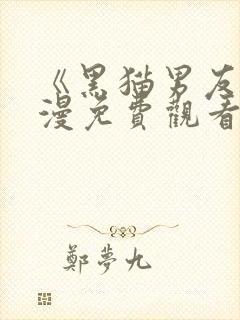 《黑猫男友
漫免費觀看
鄭夢九